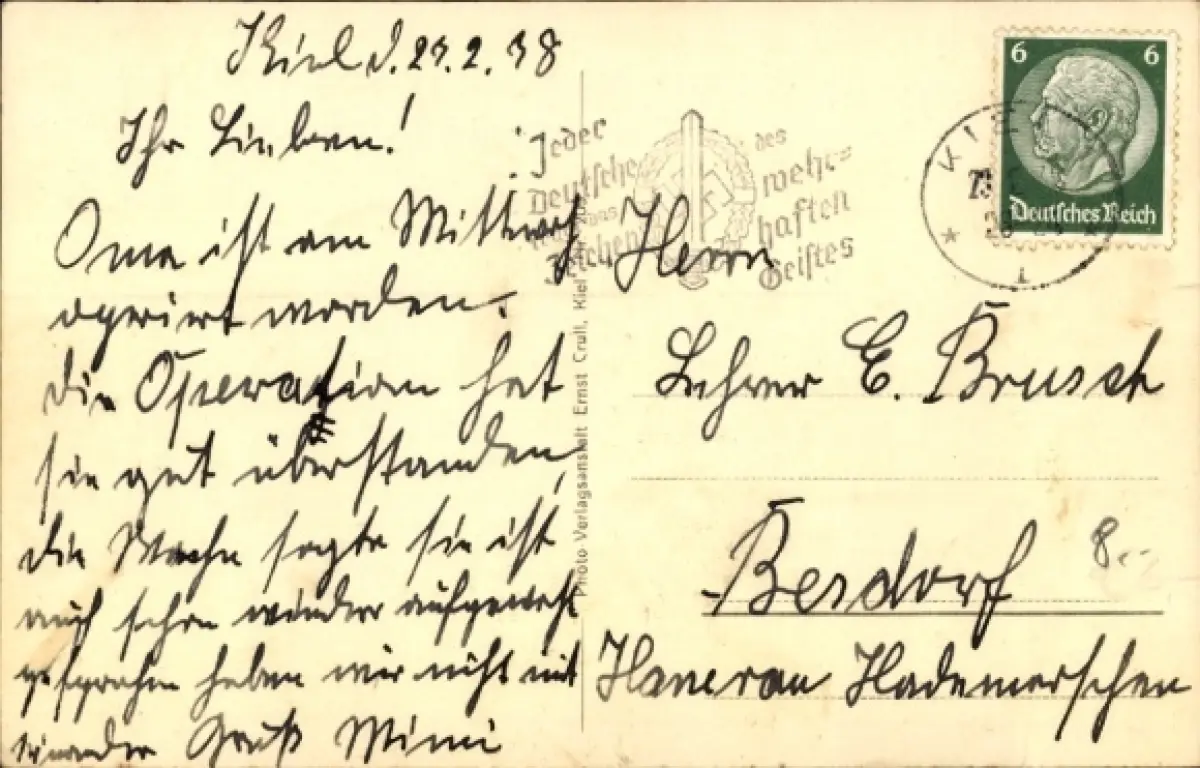 Kiel d. 23.2.38
Ihr Lieben!
Oma ist am Mittwoch
operiert worden.
die Operation hat
sie gut überstanden,
die sagte sie ist
auch schon wieder aufgewacht
gesprochen haben wir nicht mit
einander Gruß Mimi
Photo Verlagsanstalt Ernst Crull, Kiel
Jeder
Deutsche
des
wehr-
haften
Geistes
6 6
Deutsches Reich
KIEL
23
1
Herrn
Lehrer E. Brusch
Besdorf
8.-
Hanerau Hademarschen